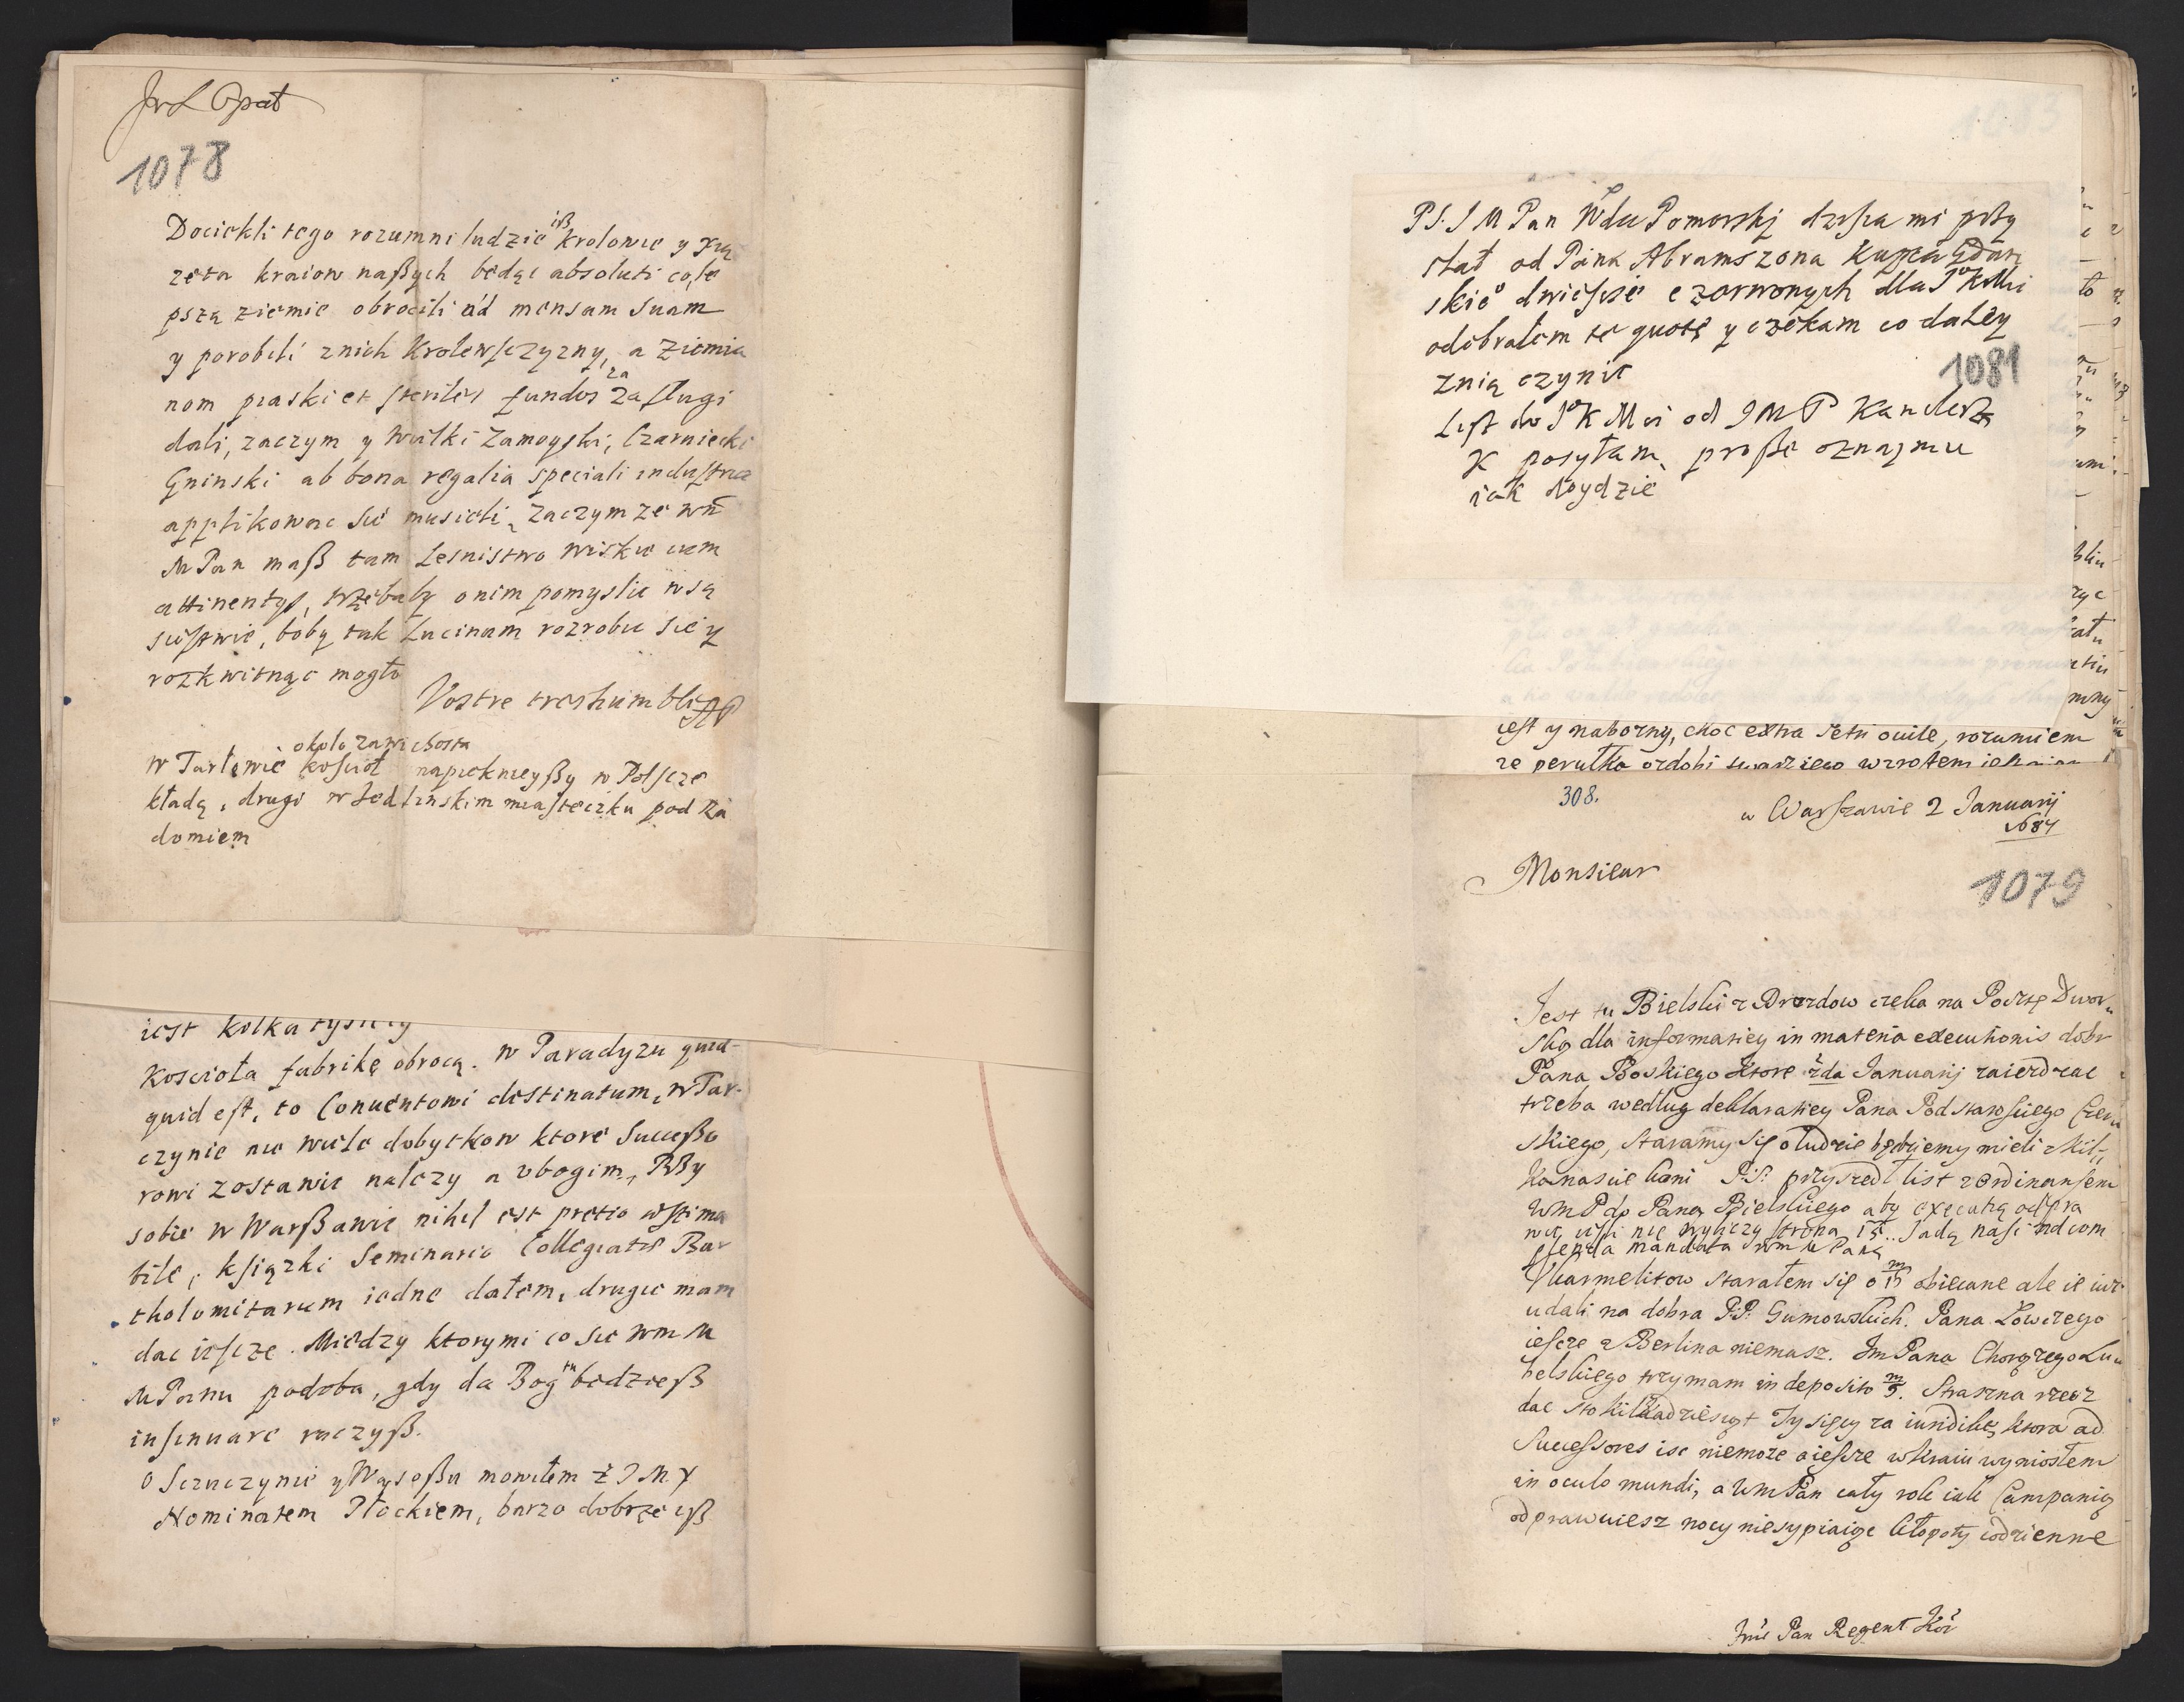 JvL Opat
1078
Dociekli tego rozumni ludzie iß krolowie y Xią
zeta kraiow naßych będąc absoluti co le
pszą ziemie obrocili ad mensam suam
y porobili znich Krolewsczyzny, a Ziemia
nom piaski et steriles fundos za za slugi
dali, zaczym y wielki Zamoyski, Czarniecki
Gninski ab bona regalia speciali industria
applikowac sie musieli, Zaczym ze wm̄
M Pan maß tam Lesnistwo wiskie cum
attinentys, trzebaby onim pomyslic wsą
siestwie, boby tak Lucinam rozrobic sie y
rozkwitnąc mogło
Vostre treshumble
około zawichosta
w Tarłowie koscioł napieknieyßy w Polscze
kładą, drugi w Jedlinskim miasteczku pod Ra
domiem
iest kolka tysiecy
Kosciola fabrikę obrocą. w Paradyzu quid-
quid est, to Conventowi destinatum, w Tar-
czynie nie wiele dobytkow ktore Successo
rowi zostawic nalezy a vbogim, RBy
sobie w Warßawie nihil est pretio æstima
bile, ksiązki Seminario Collegiatis Bar
tholomitarum iedne dałem, drugie mam
dac iescze. Miedzy ktorymi co sie wm M
M Panu podoba, gdy da Bog tu bedzieß
insinuare raczyß.
O Sczuczynie y Wąsoßu mowiłem z J M X
Nominatem Płockiem, barzo dobrze iß
PS. J M Pan Wda Pomorskj dzisia mi przy
słał od Pana Abramszona Kupca Gdan
skie° dwiescie czerwonych dla J° K Mci
odebrałem te quotę y czekam co daley
znią czynic
1081
List do J° K Mci od J M P Kanclerza
X posyłam, proßę oznaymic
iak doydzie
iest y naborny, choc extra Petri ouile, rozumiem
ze perułka ozdobi swadziego wzrotem
308.
w Warszawie 2 Januarij
1684
Monsieur
1079
Jest tu Bielski z Drozdow czeka na Pocztę Dwor
ską dla informatiey in materia executionis dobr
Pana Boskiego ktore 2da Januarij zaierdzac
trzeba według deklaratiey Pana Podstarosciego Czer
skiego, staramy się o ludzie będziemy mieli z kil-
kanascie koni P.S: przyszedł list z ordinansem
WmP do Pana Bielskiego aby executią odpra
wił iesli nie wyliczy strona 15. Jadą nasi ad com
plenda mandata wm M Pana
V Karmelitow starałem się o 15 obiecane ale ie iuz
udali na dobra P.P. Gumowskich. Pana Łowczego
iescze z Berlina niemasz. Jm Pana Chorązego Lu
belskiego trzymam in deposito 5. Straszna rzecz
dac sto kilkadziesiąt Tysięcy za iuridikę ktora ad
Successores isc niemoze a iescze w kraiu wyniosłem
in oculo mundi, a Wm Pan cały rok iak Campanią
odprawuiesz nocy niesypiaiąc kłopoty codzienne
Jmć Pan Regent Kor